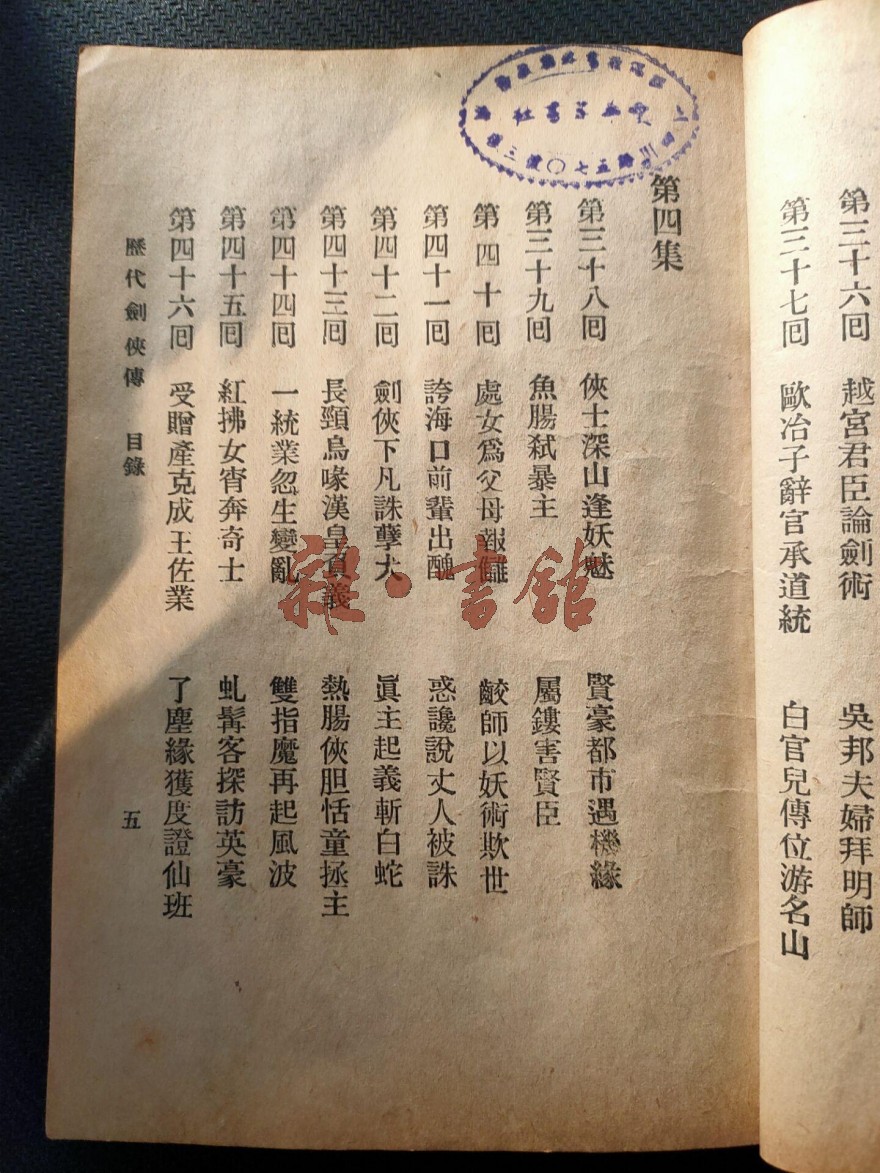 第三十六回 越宮君臣論劍術 吳邦夫婦拜明師
第三十七回 歐冶子辭官承道統 白官兒傳位游名山
第四集
第三十八回 俠士深山逢妖魅 賢豪都市遇機緣
第三十九回 魚腸弒暴主 屬鏤害賢臣
第四十回 處女爲父母報讎 鮫師以妖術欺世
第四十一回 誇海口前輩出醜 惑讒說丈人被誅
第四十二回 劍俠下凡誅孽犬 眞主起義斬白蛇
第四十三回 長頸鳥喙漢皇負義 熱腸俠胆恬童拯主
第四十四回 一統業忽生變亂 雙指魔再起風波
第四十五回 紅拂女宵奔奇士 虬髯客探訪英豪
第四十六回 受贈產克成王佐業 了塵緣獲度證仙班
歷代劍俠傳 目錄
五
雜·書舘